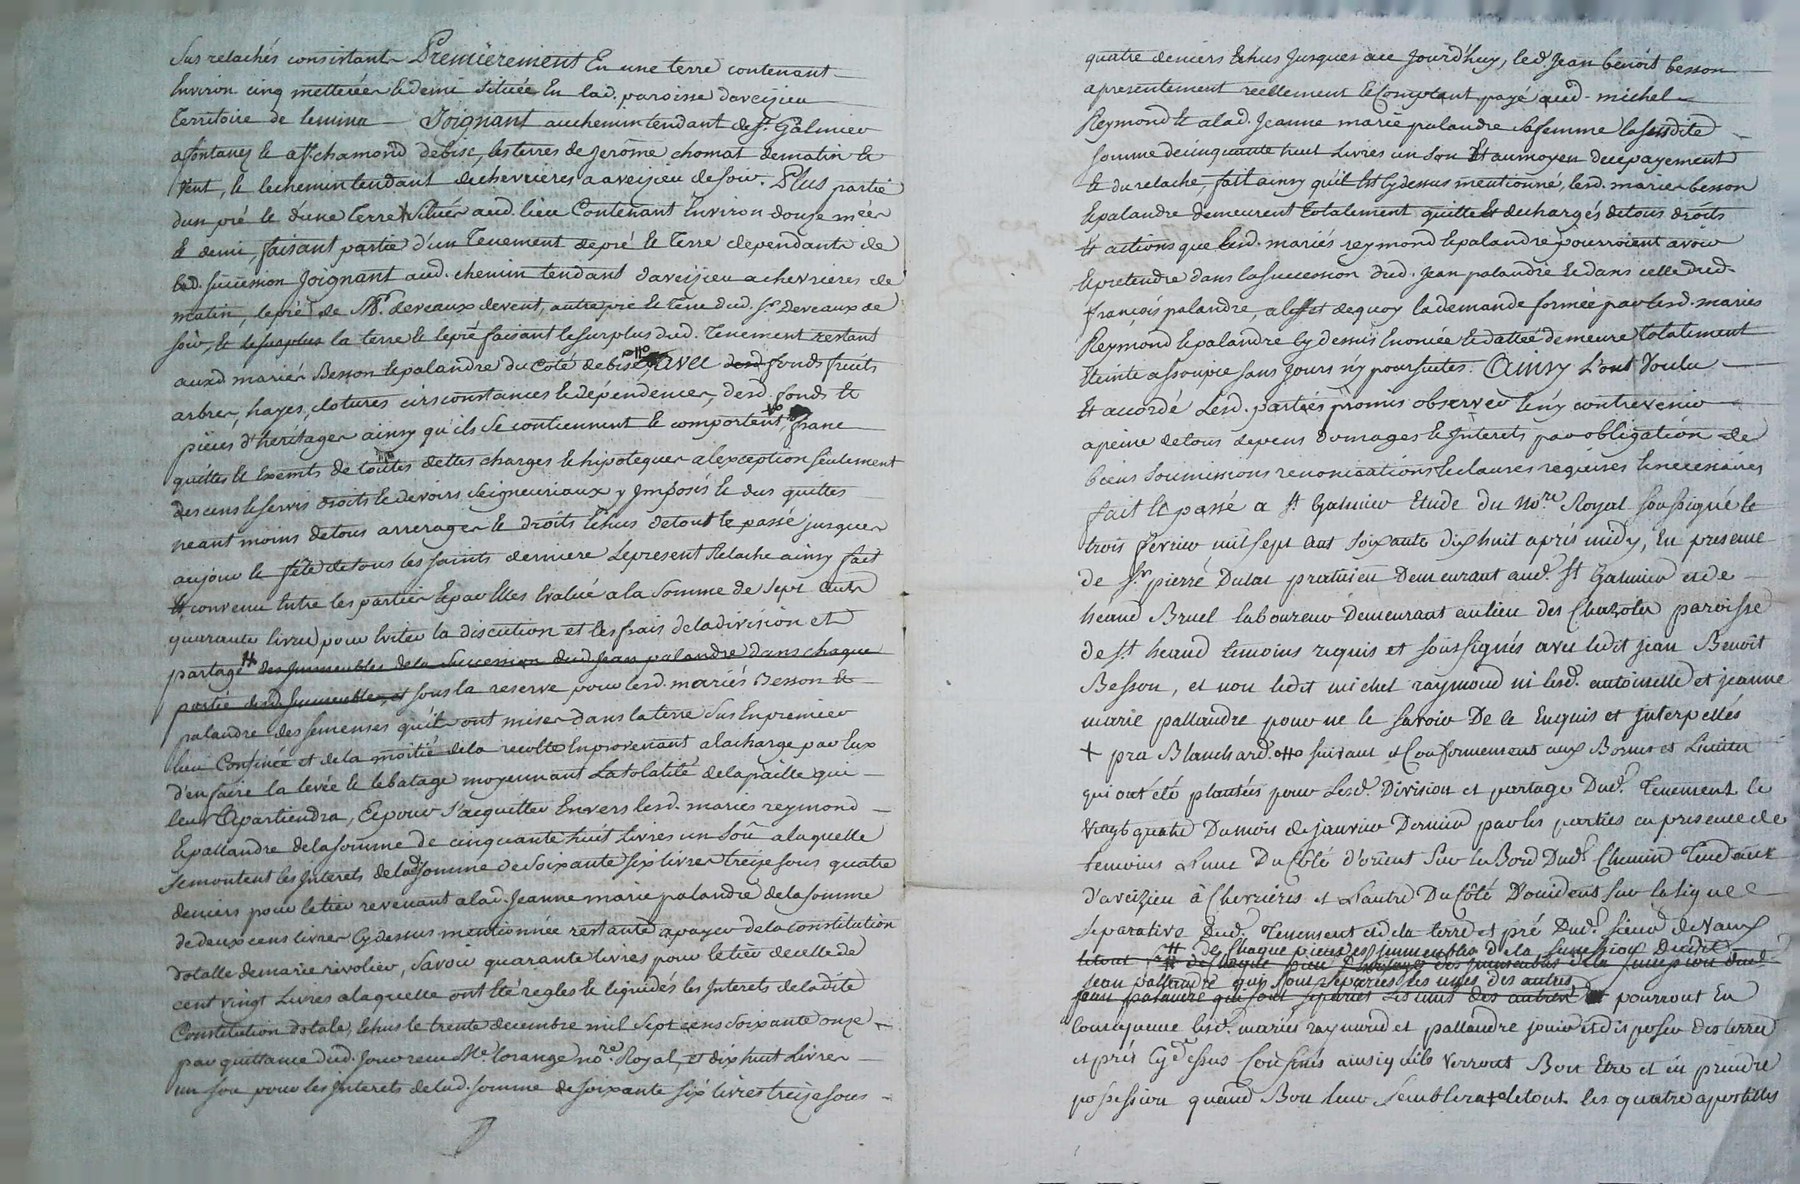 sus relachés consistant Premierement En une terre contenant
Environ cinq metterées et demi située En lad. paroisse daveizieu
Territoire de Joignant au chemin tendant de St. Galmier
a fontanez et a St. chamond debise, les terres de jerôme chomat de matin et
vent, et le chemin tendant de chevrieres a aveizieu de soir. Plus partie
dun pré et d'une terre situés aud. lieu Contenant Environ douze mées
et demi, faisant partie d'un Tenement de pré et Terre dependants de
lad. succession Joignant aud. chemin tendant daveizieu a chevrieres de
matin, le pré de Mr. deveaux devent, autre pré et terre dud. Sr. Deveaux de
soir, et le surplus la terre et le pré faisant le surplus dud. Tenement restant
auxd mariés Besson et palandre du Coté de bise avec fonds fruits
arbres, hayes, clotures circonstances et dépéndences, desd. fonds et
pièces d'heritages ainsy qu'ils se contiennent et comportent, franc
quittes et Exemts de toutes dettes charges et hipoteques a lexception seulement
des cens et servis droits et devoirs seigneuriaux y Imposés et dus quittes
neant moins de tous arrerages et droits Echus de tout le passé jusques
aujour et fête de tous les saints derniere Le present Relache ainsy fait
et convenu Entre les parties et par Elles Evalué a la somme de sept cents
quarante livres pour Eviter la discution et les frais de la division et
partage des Immeubles de la succession dud Jean palandre dans chaque
partie desd. Immeubles, et sous la reserve pour lesd. mariés Besson et
palandre des semences qu'ils ont mises dans la terre sus En premier
lieu Confinée et de la moitié de la recolte En provenant a la charge par Eux
d'en faire la levée et le batage moyennant La totalité de la paille qui
leur Apartiendra, Et pour s'acquitter Envers lesd. mariés reymond
Et pallandre de la somme de cinquante huit livres un sou a laquelle
se montent les Interets de lad. somme de soixante six livres treize sous quatre
deniers pour le tier revenant a lad. Jeanne marie palandre de la somme
de deux cens livres Cy dessus mentionnée restante a payer de la Constitution
dotalle de marie rivolier, savoir quarante livres pour le tier de celle de
cent vingt Livres a laquelle ont Eté reglés et liquidés les Interets de ladite
Constitution dotale, Echus le trente decembre mil sept cens soixante onze
par quittance dud. jour recu Me. lorange nore. Royal, et dix huit Livres
un sou pour les Interets de lad. somme de soixante six livres treize sous
quatre deniers Echus Jusques a ce Jourd'huy, led. Jean benoit besson
a presentement reellement et Comptant payé aud. michel
Reymond et a lad. Jeanne marie palandre sa femme la susdite
somme de cinquante huit Livres un sou Et au moyen du payement
et du relache, fait ainsy qu'il Est Cy dessus mentionné, lesd. maries besson
et palandre demeurent totalement quittes Et dechargés de tous droits
Et actions que lesd. mariés reymond et palandre pourroient avoir
et pretendre dans la succession dud. Jean palandre et dans celle dud.
françois palandre, a l'effet de quoy la demande formée par lesd. maries
Reymond et palandre Cy dessus Enoncée et dattée demeure totalement
Eteinte assoupie sans Jours ny poursuites. Ainsy L'ont Voulu
Et accordé Lesd. parties promis observer et n'y contrevenir
a peine de tous depens domages et Interets par obligation de
biens soumissions renonciations et clauses requises et necessaires
fait et passé a St Galmier Etude du Nore. Royal soussigné le
trois fevrier mil sept cent soixante dix huit après midy, En presence
de Sr pierre Dulac praticien Demeurant aud. St Galmier et de
heand Bruel laboureur Demeurant au lieu des Chazoles paroisse
de St heand temoins requis et soussignés avec ledit jean Benoît
Besson, et non ledit michel raymond ni lesd. antoinette et jeanne
marie pallandre pour ne le savoir De ce Enquis et Interpellés
+ pra Blanchard. suivant et Conformement aux Bornes et Limites
qui ont été plantées pour Lesd. Division et partage Dud. Tenement le
vingt quatre Du mois de janvier Dernier par les parties en presence de
temoins L'une Du Côté d'orient sur le Bord Dud. Chemin Tendant
d'aveizieu à Chevrieres et L'autre Du Côté D'occident sur la ligne
separative Dud. Tenement et de la terre et pré Dud. sieur de Vaux
de chaque pieces et immeubles de la succession dudit
jean pallandre qui sont séparées les unes des autres
jean palandre qui sont separées les unes des autres pourront En
Consequence lesd. mariés raymond et pallandre jouir et disposer des terre
et prés Cy dessus Confinés ainsi qu'ils verront Bon Etre et en prendre
possession quand Bon leur semblera et le tout. les quatre apostilles